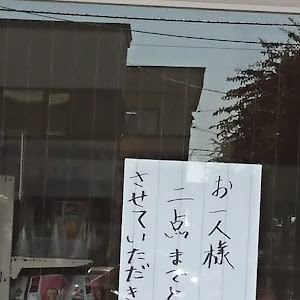 お一人様
二点までと
させていただき